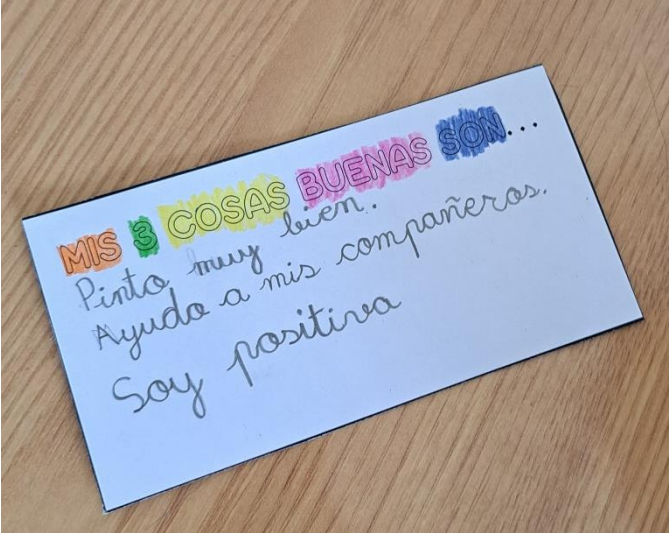 MIS 3 COSAS BUENAS SON...
Pinto muy bien.
Ayudo a mis compañeros.
Soy positiva